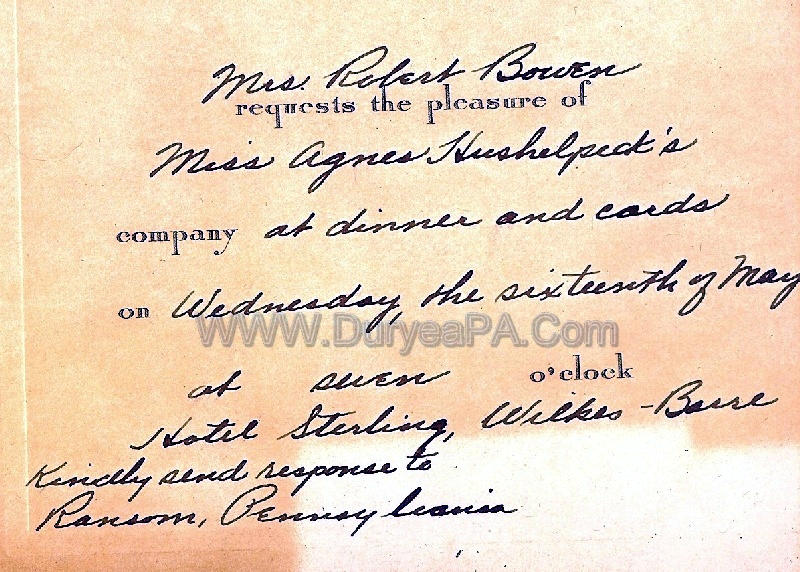 Mrs. Robert Bowen
requests the pleasure of
Miss Agnes Hushelpeck's
company at dinner and cards
on Wednesday, the sixteenth of May
WWW.DuryeaPA.Com
at seven o'clock
Hotel Sterling, Wilkes-Barre
Kindly send response to
Ransom, Pennsylvania